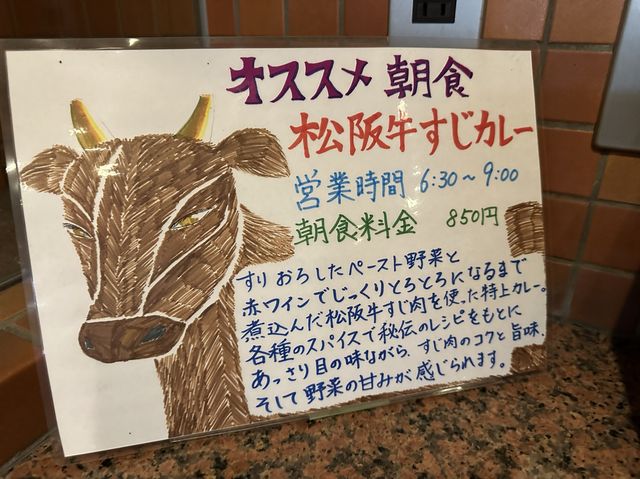 オススメ 朝食
松阪牛すじカレー
営業時間 6:30～9:00
朝食料金 850円
すりおろしたペースト野菜と
赤ワインでじっくりとろとろになるまで
煮込んだ松阪牛すじ肉を使った特上カレー。
各種のスパイスで秘伝のレシピをもとに
あっさり目の味ながら、すじ肉のコクと旨味、
そして野菜の甘みが感じられます。